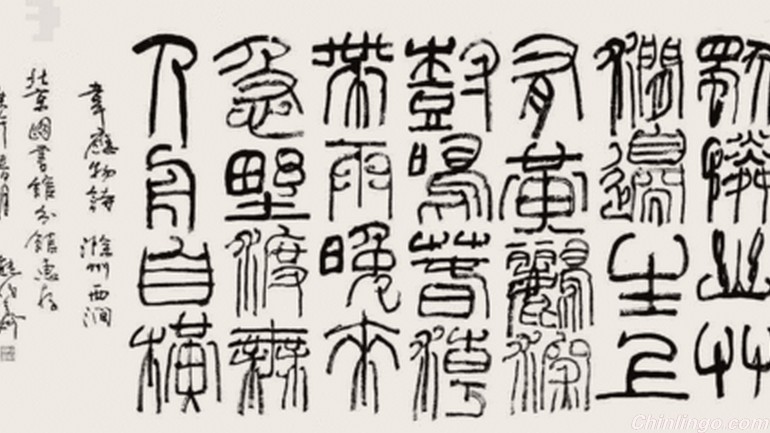 獨憐幽艸
澗邊生上
有黃鸝深
樹鳴春潮
帶雨晚來
急野渡無
人舟自橫
韋應物詩 滁州西澗
北京圖書館分館惠存
Chinlingo.com